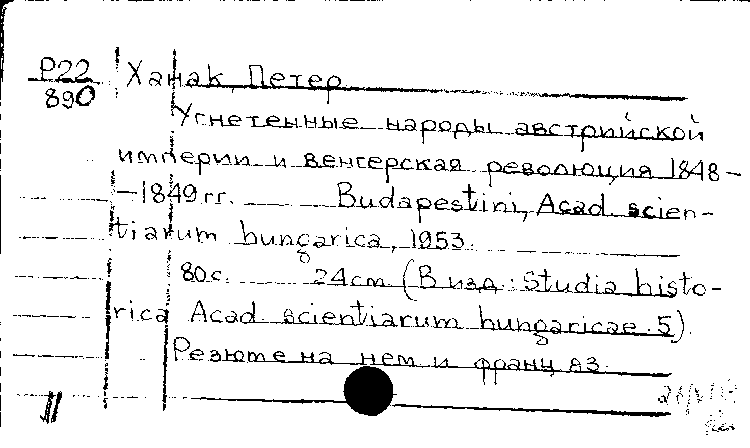 Р22
890
Ханак, Петер
Угнетенные народы австрийской
империи и венгерская революция 1848-
-1849 гг. Budapestini, Acad. scien-
tiarum hungarica, 1953.
80с. 24cm (В изд.: Studia histo-
rica Acad. scientiarum hungaricae. 5).
Резюме на нем и франц яз.